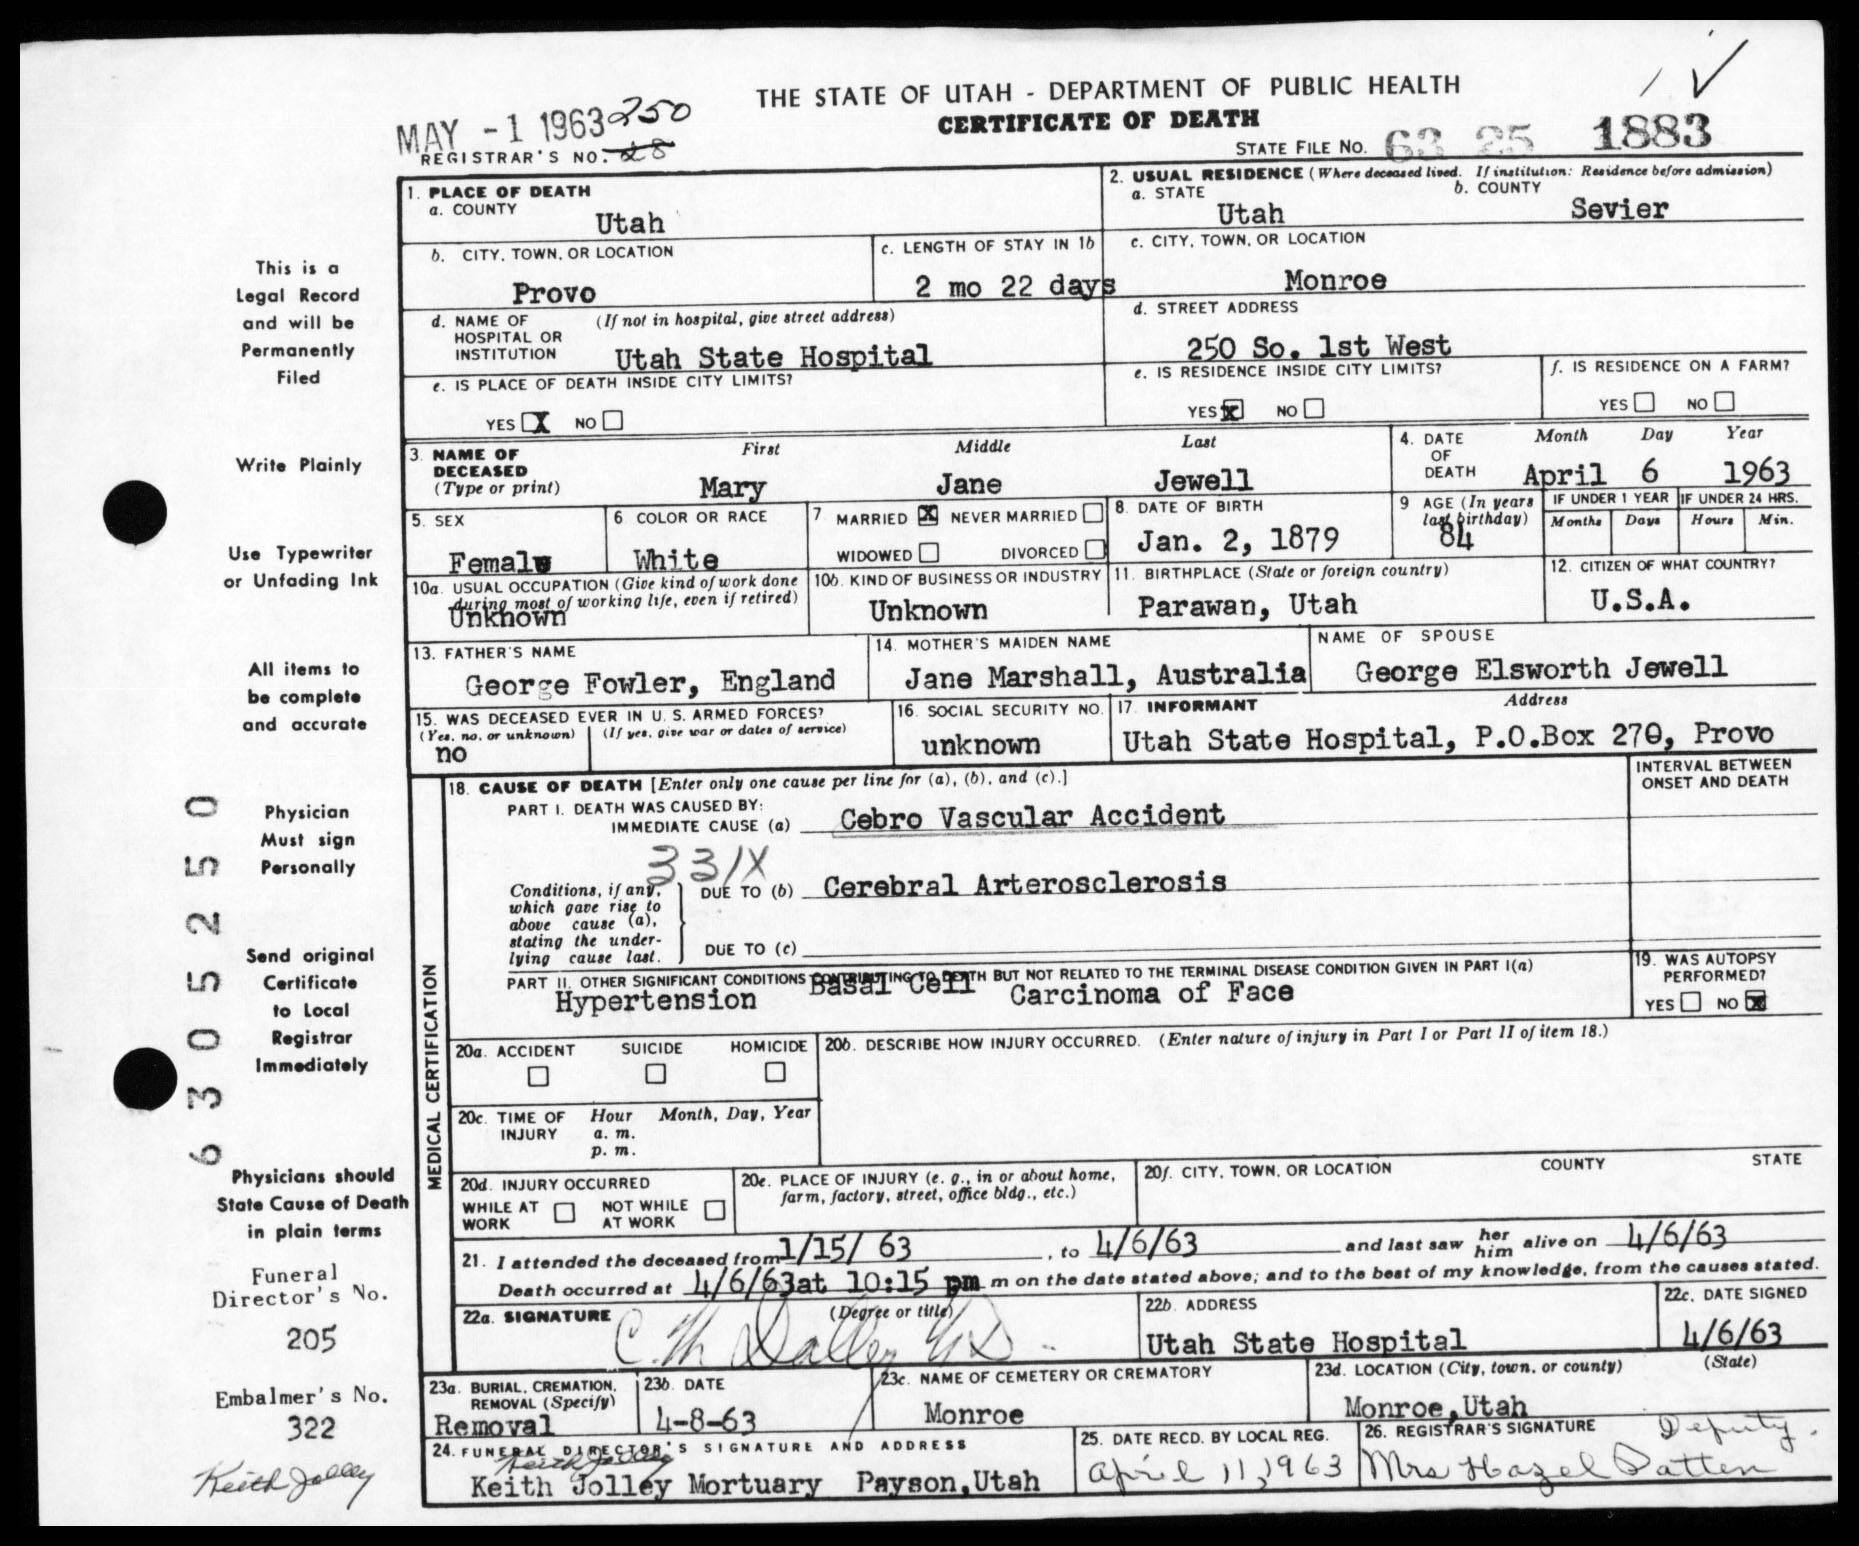 THE STATE OF UTAH - DEPARTMENT OF PUBLIC HEALTH
CERTIFICATE OF DEATH
MAY - 1 1963 250
REGISTRAR'S NO. 28
STATE FILE NO. 63 25 1883
1. PLACE OF DEATH
a. COUNTY
Utah
2. USUAL RESIDENCE (Where deceased lived. If institution: Residence before admission)
a. STATE
b. COUNTY
Utah
Sevier
b. CITY, TOWN, OR LOCATION
Provo
c. LENGTH OF STAY IN 1b
2 mo 22 days
c. CITY, TOWN, OR LOCATION
Monroe
d. NAME OF HOSPITAL OR INSTITUTION
(If not in hospital, give street address)
Utah State Hospital
d. STREET ADDRESS
250 So. 1st West
e. IS PLACE OF DEATH INSIDE CITY LIMITS?
YES X NO
e. IS RESIDENCE INSIDE CITY LIMITS?
YES X NO
f. IS RESIDENCE ON A FARM?
YES NO
3. NAME OF DECEASED
(Type or print)
First Middle Last
Mary Jane Jewell
4. DATE OF DEATH
Month Day Year
April 6 1963
5. SEX
Female
6. COLOR OR RACE
White
7. MARRIED X NEVER MARRIED
WIDOWED DIVORCED
8. DATE OF BIRTH
Jan. 2, 1879
9 AGE (In years last birthday)
84
IF UNDER 1 YEAR
Months Days
IF UNDER 24 HRS.
Hours Min.
10a. USUAL OCCUPATION (Give kind of work done during most of working life, even if retired)
Unknown
10b. KIND OF BUSINESS OR INDUSTRY
Unknown
11. BIRTHPLACE (State or foreign country)
Parawan, Utah
12. CITIZEN OF WHAT COUNTRY?
U.S.A.
13. FATHER'S NAME
George Fowler, England
14. MOTHER'S MAIDEN NAME
Jane Marshall, Australia
NAME OF SPOUSE
George Elsworth Jewell
15. WAS DECEASED EVER IN U. S. ARMED FORCES?
(Yes, no, or unknown) (If yes, give war or dates of service)
no
16. SOCIAL SECURITY NO.
unknown
17. INFORMANT Address
Utah State Hospital, P.O.Box 270, Provo
MEDICAL CERTIFICATION
18. CAUSE OF DEATH [Enter only one cause per line for (a), (b), and (c).]
INTERVAL BETWEEN ONSET AND DEATH
PART I. DEATH WAS CAUSED BY:
IMMEDIATE CAUSE (a) Cebro Vascular Accident
331X
Conditions, if any, which gave rise to above cause (a), stating the underlying cause last.
DUE TO (b) Cerebral Arterosclerosis
DUE TO (c)
PART II. OTHER SIGNIFICANT CONDITIONS CONTRIBUTING TO DEATH BUT NOT RELATED TO THE TERMINAL DISEASE CONDITION GIVEN IN PART I(a)
Hypertension Basal Cell Carcinoma of Face
19. WAS AUTOPSY PERFORMED?
YES NO X
20a. ACCIDENT SUICIDE HOMICIDE
20b. DESCRIBE HOW INJURY OCCURRED. (Enter nature of injury in Part I or Part II of item 18.)
20c. TIME OF INJURY
Hour Month, Day, Year
a. m.
p. m.
20d. INJURY OCCURRED
WHILE AT WORK NOT WHILE AT WORK
20e. PLACE OF INJURY (e. g., in or about home, farm, factory, street, office bldg., etc.)
20f. CITY, TOWN, OR LOCATION COUNTY STATE
21. I attended the deceased from 1/15/ 63, to 4/6/63 and last saw her him alive on 4/6/63
Death occurred at 4/6/63at 10:15 pm m on the date stated above; and to the best of my knowledge, from the causes stated.
22a. SIGNATURE (Degree or title)
22b. ADDRESS
Utah State Hospital
22c. DATE SIGNED
4/6/63
23a. BURIAL, CREMATION, REMOVAL (Specify)
Removal
23b. DATE
4-8-63
23c. NAME OF CEMETERY OR CREMATORY
Monroe
23d. LOCATION (City, town, or county) (State)
Monroe,Utah
24. FUNERAL DIRECTOR'S SIGNATURE AND ADDRESS
Keith Jolley
Keith Jolley Mortuary Payson,Utah
25. DATE RECD. BY LOCAL REG.
April 11, 1963
26. REGISTRAR'S SIGNATURE
Deputy.
Mrs Hazel Patten
This is a
Legal Record
and will be
Permanently
Filed
Write Plainly
Use Typewriter
or Unfading Ink
All items to
be complete
and accurate
Physician
Must sign
Personally
Send original
Certificate
to Local
Registrar
Immediately
Physicians should
State Cause of Death
in plain terms
Funeral
Director's No.
205
Embalmer's No.
322
Keith Jolley
6 3 0 5 2 5 0